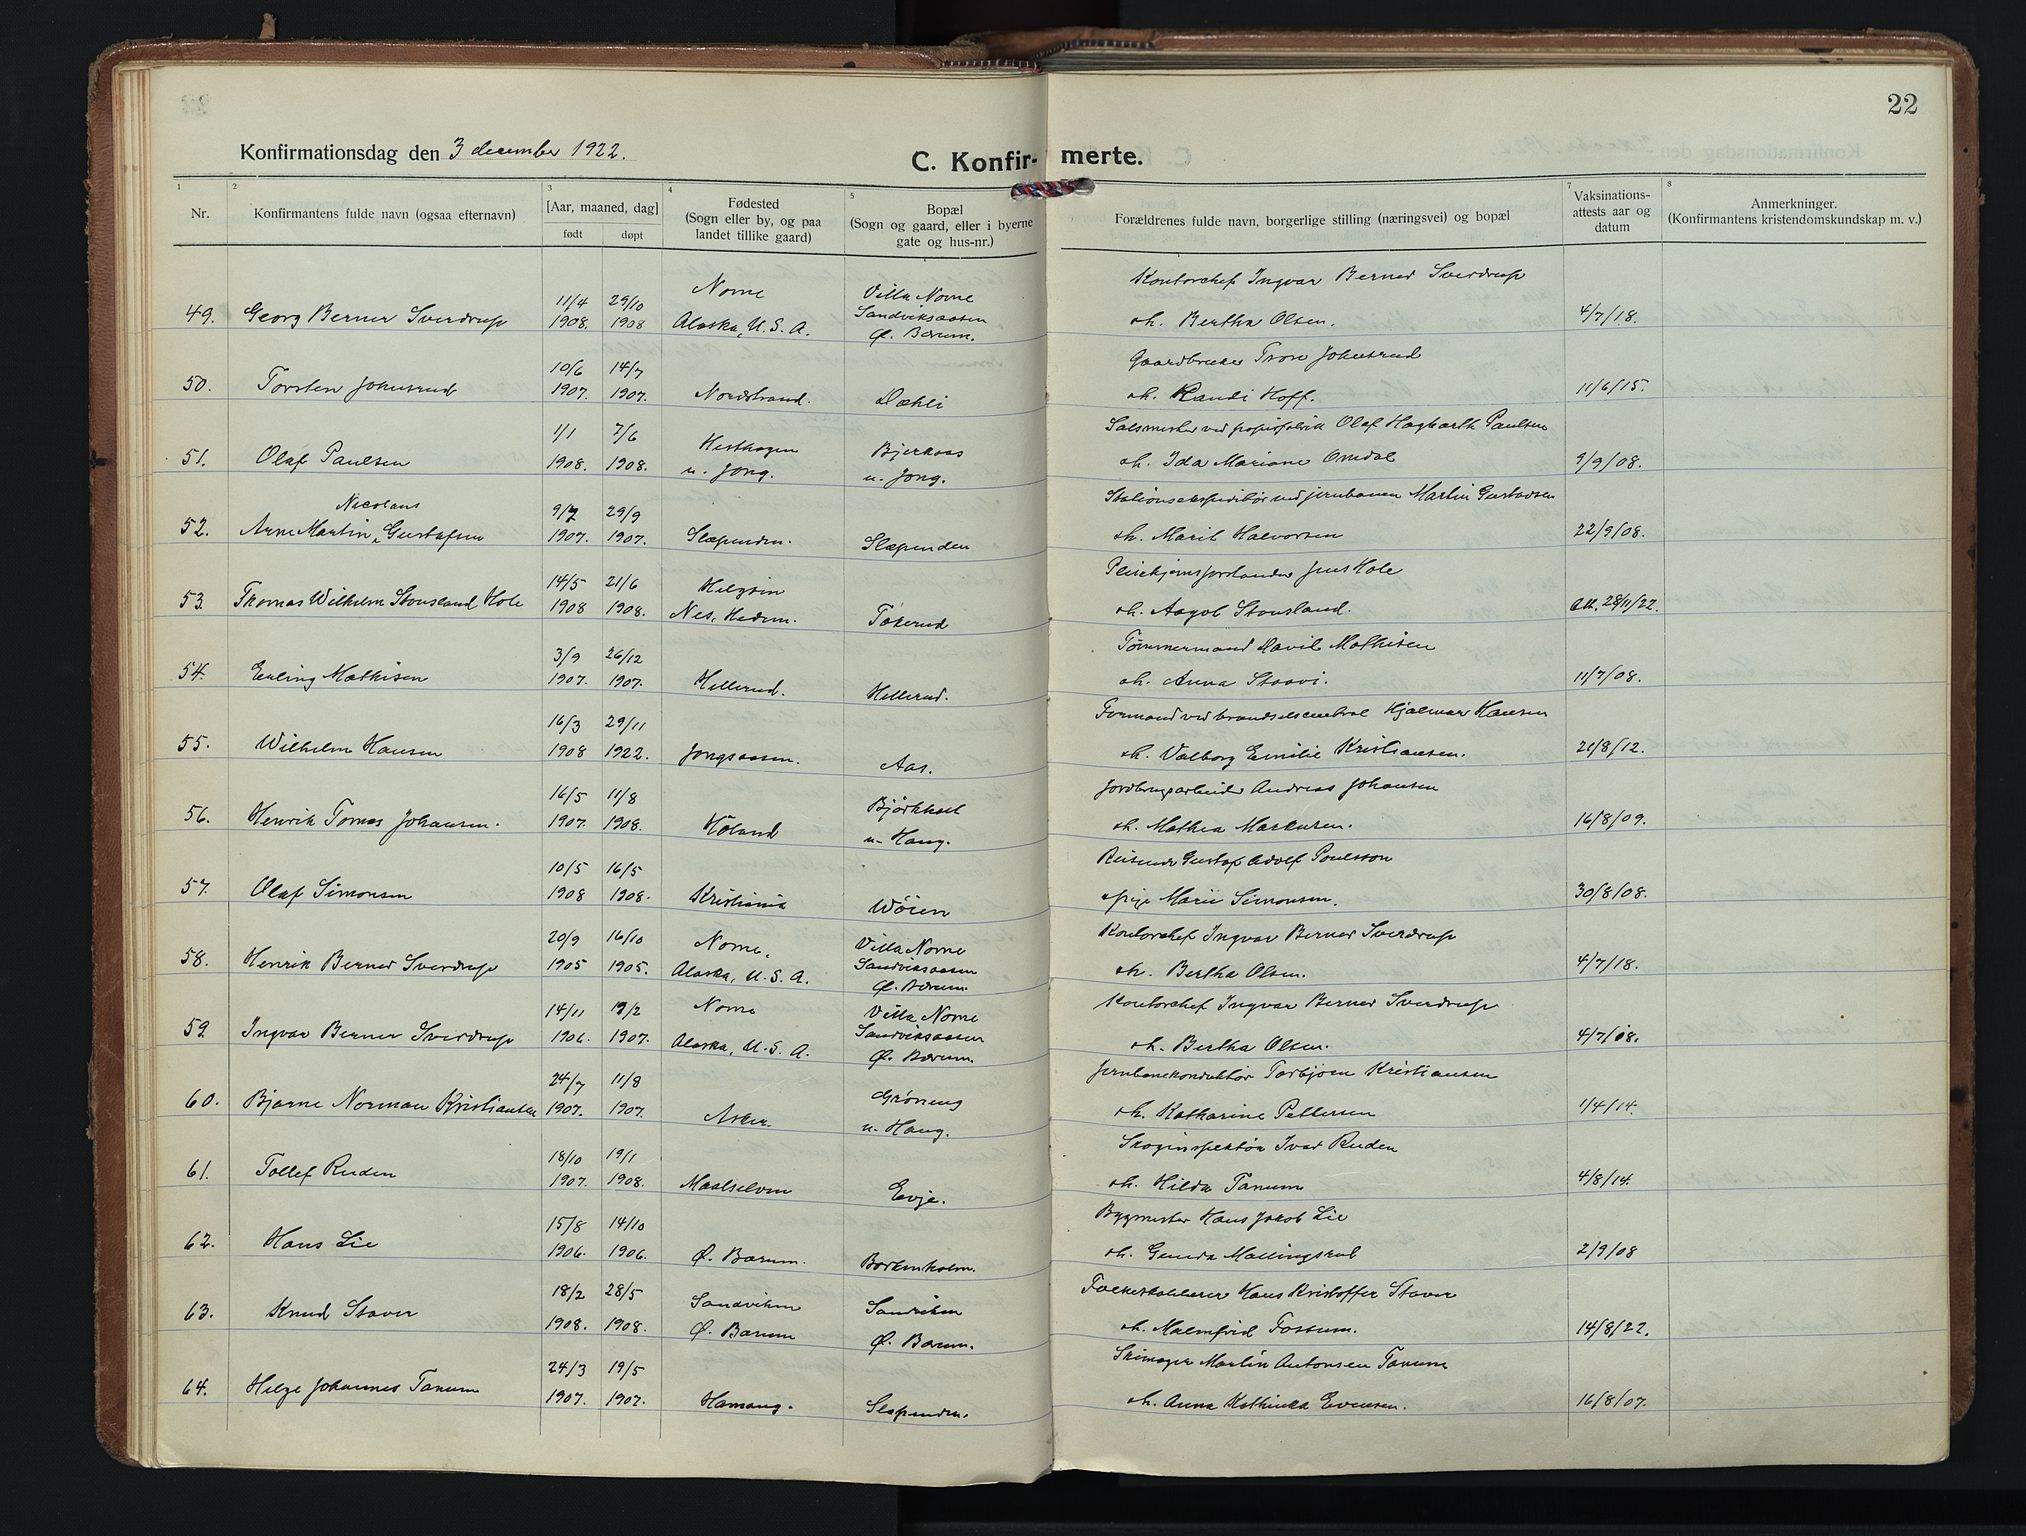 22
Konfirmationsdag den 3 december 1922.
C. Konfir- merte.
1 2 3 4 5 7 8
Nr.
Konfirmantens fulde navn (ogsaa efternavn)
[Aar, maaned, dag]
født døpt
Fødested
(Sogn eller by, og paa
landet tillike gaard)
Bopæl
(Sogn og gaard, eller i byerne
gate og hus-nr.)
Forældrenes fulde navn, borgerlige stilling (næringsvei) og bopæl
Vaksinations-
attests aar og
datum
Anmerkninger.
(Konfirmantens kristendomskundskap m. v.)
Kontorchef Ingvar Berner Sverdrup
11/4 29/10 Nome Villa Nome
49. Georg Berner Sverdrup 1908. 1908 Alaska, U. S. A. Sandviksaasen
Ø. Bærum.
oh. Bertha Olsen. 4/7/18.
10/6 14/7 Gaardbruker Tron Johnsrud
50. Torsten Johnsrud 1907. 1907. Nordstrand. Dæhli oh. Randi Hoff. 11/6/15.
1/1 7/6 Hesthagen Bjerkaas Salsmester ved papirfabrik Olaf Hagbarth Paulsen
51. Olaf Paulsen 1908. 1908. u. Jong. u. Jong. oh. Ida Mariane Omdal 9/9/08.
Nicolaus 9/7 29/9 Stationsekspeditør ved jernbanen Martin Gustavsen
52. Arne Martin Gustafsen 1907. 1907. Slæpenden. Slæpenden oh. Marit Halvorsen 22/9/08.
14/5 21/6 Helgøin Pleiehjemsforstander Jens Hole
53. Thomas Wilhelm Stousland Hole 1908 1908. Nes, Hedm. Tokerud oh. Aagot Stousland. Att. 28/11/22.
3/9 26/12 Tømmermand David Mathisen
54. Erling Mathisen 1907. 1907. Hellerud. Hellerud. oh. Anna Staavi. 11/7/08.
16/3 29/11 Formand ved brændselscentral Hjalmar Hansen
55. Wilhelm Hansen 1908 1922. Jongsaasen. Aas. oh. Valborg Emilie Kristiansen. 21/8/12.
16/5 11/8 Bjørkholt Jordbrugsarbeider Andreas Johansen
56. Henrik Tomas Johansen. 1907. 1908. Høland u. Haug. oh. Mathea Markusen. 16/8/09.
10/5 16/5 Reisende Gustaf Adolf Poulsson
57. Olaf Simonsen 1908 1908. Kristiania Wøien pige Marie Simonsen. 30/8/08.
20/9 16/10 Nome, Villa Nome Kontorchef Ingvar Berner Sverdrup
58. Henrik Berner Sverdrup 1905 1905. Alaska, U. S. A. Sandviksaasen
Ø. Bærum.
oh. Bertha Olsen. 4/7/18.
14/11 Nome Villa Nome Kontorchef Ingvar Berner Sverdrup
59. Ingvar Berner Sverdrup 1906. 1907. Alaska, U. S. A. Sandviksaasen
Ø. Bærum.
oh. Bertha Olsen. 4/7/18.
24/7 11/8 Grøneng Jernbanekonduktør Torbjørn Kristiansen
60. Bjarne Norman Kristiansen 1907. 1907. Asker. u. Haug. oh. Katharine Pettersen 1/4/14.
18/10 19/1 Skoginspektør Ivar Ruden
61. Tollef Ruden 1907. 1908. Maalselven Evje. oh. Hilda Tanum 4/8/14.
15/8 14/10 Bygmester Hans Jakob Lie
62. Hans Lie 1906. 1906. Ø. Bærum. Borkenholm. oh. Gunda 2/9/08
18/2 28/5 Sandviken Sandviken Hans Kristoffer Staver
63. Knud Staver 1908. 1908. Ø. Bærum Ø. Bærum. oh. Malmfrid Fossum. 14/8/22.
24/3 19/5 Skimager Martin Antonsen Tanum
64. Helge Johannes Tanum 1907. 1907. Hamang. Slæpenden. oh. Anna Kathinka Evensen. 16/8/07.